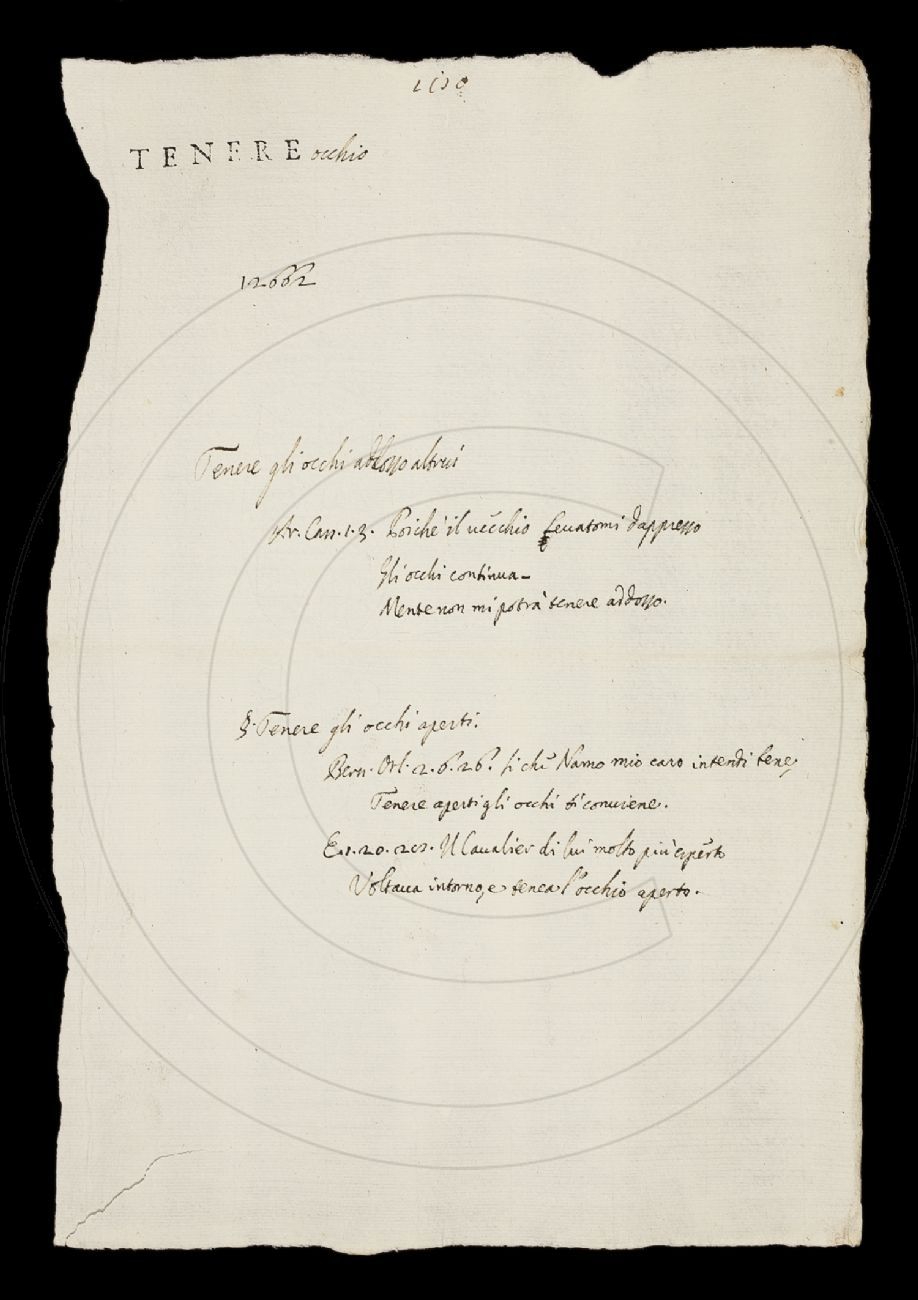 TENERE occhio
12662
Tenere gli occhi addosso altrui
Ar. Cass. 1. 3. Poiche il vecchio levatomi dappresso
Gli occhi continua-
Mente non mi potrà tenere addosso.
§. Tenere gli occhi aperti.
Bern. Orl. 2. 6. 26. Sichè Namo mio caro intendi bene,
Tenere aperti gli occhi si conviene.
E. 1. 20. Il Cavalier di lui molto più esperto
Voltava intorno, e tenea l'occhio aperto.